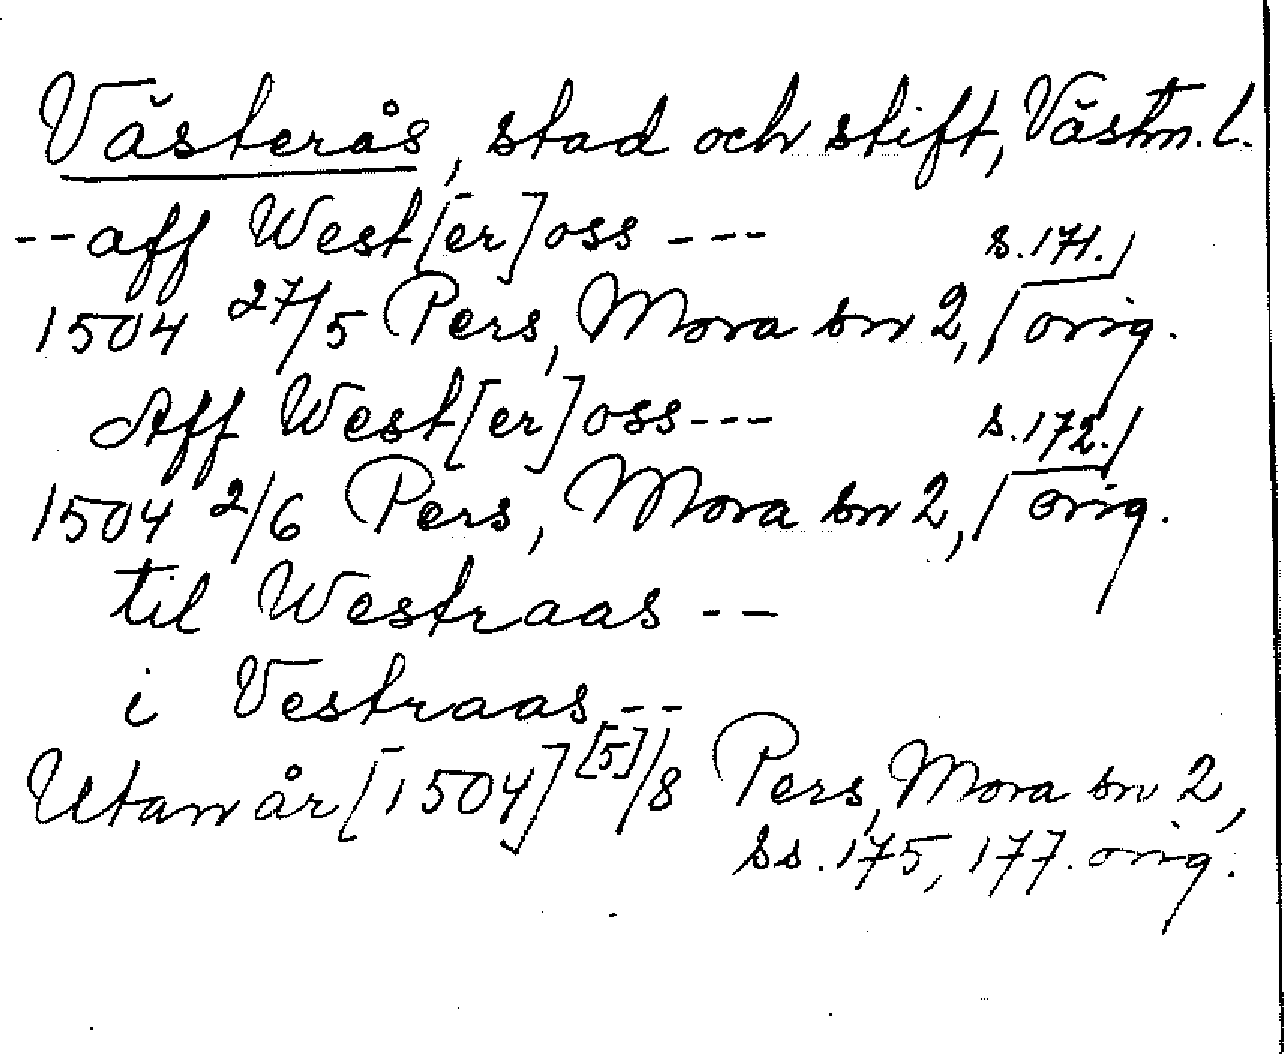 Västerås, stad och stift, Västm. l.
-- aff West[er]oss --- s. 171.
1504 27/5 Pers, Mora sn 2, orig.
Aff West[er]oss --- s. 172.
1504 2/6 Pers, Mora sn 2, orig.
til Westraas --
i Vestraas --
Utan år [1504] [5]/8 Pers, Mora sn 2,
ss. 175, 177. orig.